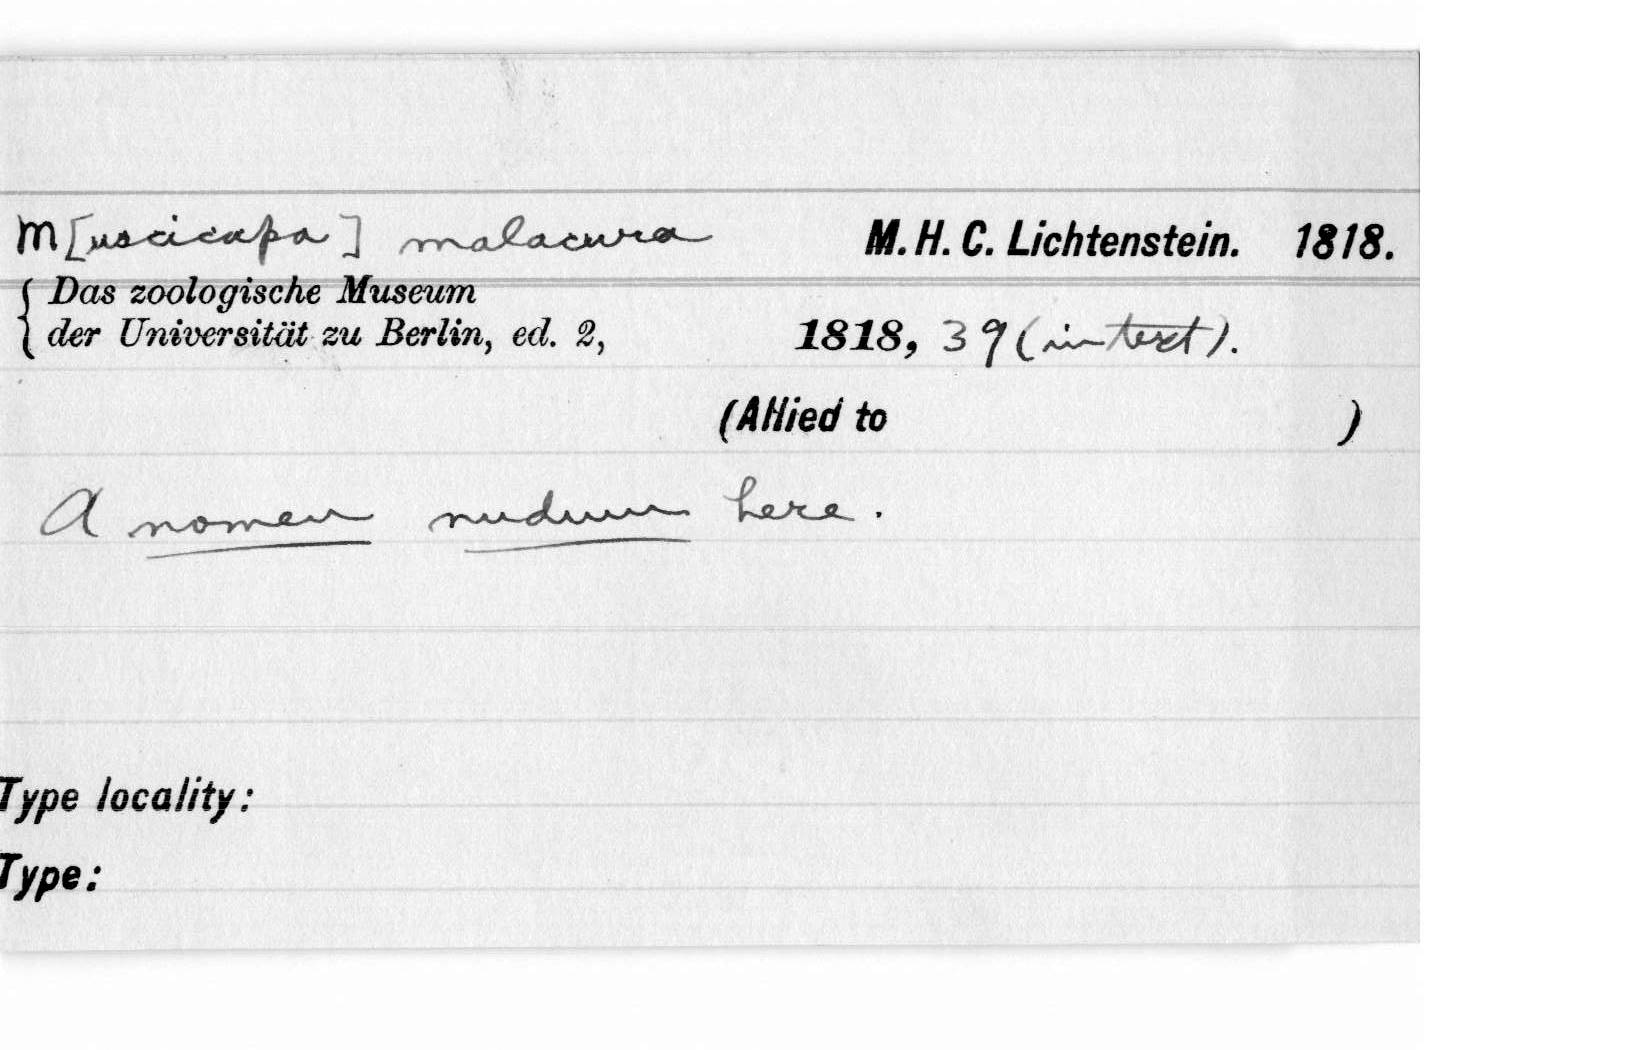 M[uscicapa] malacura M. H. C. Lichtenstein. 1818.
{ Das zoologische Museum
der Universität zu Berlin, ed. 2, 1818, 39 (in text).
(Allied to )
A nomen nudum here.
Type locality:
Type: